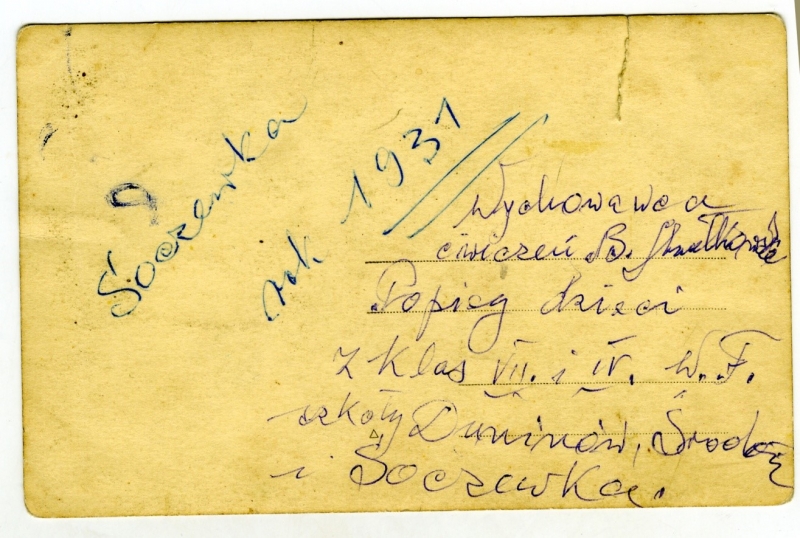 Soczewka
rok 1931
Wychowawca
ćwiczeń B.
Popisy dzieci
z klas VII. i IV. W.F.
szkoły Duninów, Środoń
i Soczewka.